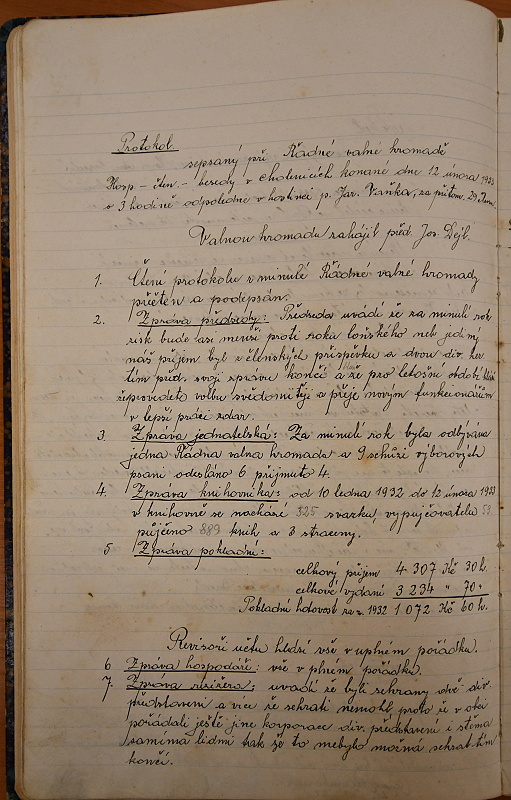 Protokol
sepsaný při Řádné valné hromadě
Hosp - čten. - besedy v Cholenicích konané dne 12 února 1933
o 3 hodině odpoledne v hostinci p. Jar. Vaňka, za přítom. 29 členů.
Valnou hromadu zahájil před. Jos. Dejl.
1. Čtení protokolu z minulé Řádné valné hromady
přečten a podepsán.
2. Zpráva předsedy: Předseda uvádí že za minulí rok
zisk bude asi menší proti roku loňského neb jediný
náš příjem byl z členských příspěvků a dvou div. her
tím před. svoji zprávu končí a že pro letošní období
zeprovedeto volbu svědomitěji a přeje novým funkcionářům
v lepší práci zdar.
3. Zpráva jednatelská: Za minulí rok byla odbývána
jedna Řádna valna hromada a 9 schůzí výborových
psaní odesláno 6 přijmuto 4.
4. Zpráva knihovníka: od 10 ledna 1932 do 12 února 1933
v knihovně se nachází 325 svazků, vypujčovatelů 53
půjčeno 889 knih a 3 straceny.
5 Zpráva pokladní:
celkový příjem 4 307 Kč 30 h.
celkové vydání 3 234 " 70 "
Pokladní hotovost za r. 1932 1 072 Kč 60 h.
Revisoři účtu hledsí vše v uplném pořádku.
6 Zpráva hospodáře: vše v plném pořádku.
7. Zpráva režiséra: uvadí že byli sehrany dvě div.
představení a více že sehrati nemohl proto že v obci
pořádali ještě jine korporace div. představení i stěma
samíma lidmi tak še to nebylo možná sehrat tím
končí.